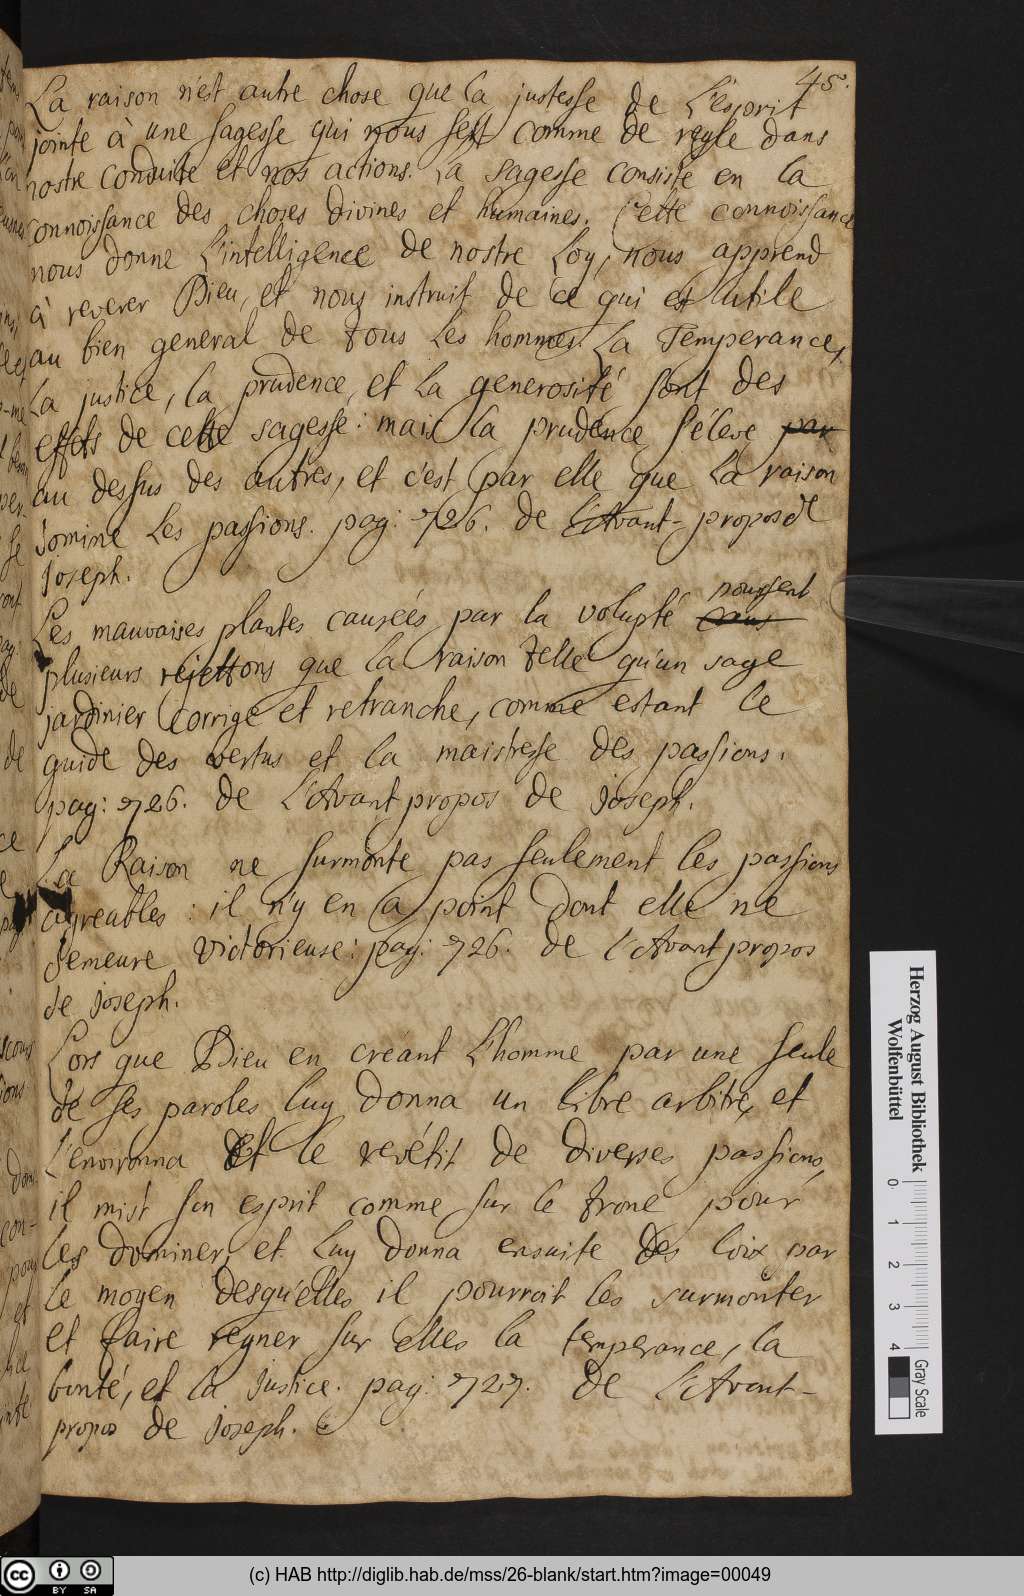 45.
La raison n'est autre chose que la justesse de L'esprit
jointe à une sagesse qui nous sert comme de regle dans
nostre conduite et nos actions. La sagesse consiste en la
connoissance des choses divines et humaines. Cette connoissance
nous donne L'intelligence de nostre Loy, nous apprend
à reverer Dieu, et nous instruit de ce qui est utile
au bien general de tous les hommes. La Temperance,
La justice, la prudence, et la generosité sont des
effets de cette sagesse: mais la prudence s'éleve par
au dessus des autres, et c'est par elle que la raison
domine les passions. pag: 726. de L'Avant-propos de
Joseph.
Les mauvaises plantes causées par la volupté poussent
plusieurs rejettons que la raison telle qu'un sage
jardinier corrige et retranche, comme estant le
guide des vertus et la maistresse des passions.
pag: 726. de L'Avant propos de Joseph.
La Raison ne surmonte pas seulement les passions
agreables: il n'y en a point dont elle ne
demeure victorieuse: pag: 726. de l'Avant propos
de Joseph.
Lors que Dieu en creant L'homme par une seule
de ses paroles luy donna un libre arbitre, et
L'environna et le revétit de diverses passions,
il mist son esprit comme sur le trone pour
les dominer, et luy donna ensuite des loix par
le moyen desquelles il pourroit les surmonter
et faire regner sur elles la temperance, la
bonté, et la Justice. pag: 727. de L'Avant-
propos de Joseph.
Herzog August Bibliothek
Wolfenbüttel
0 1 2 3 4
Gray Scale
cc BY SA
(c) HAB http://diglib.hab.de/mss/26-blank/start.htm?image=00049